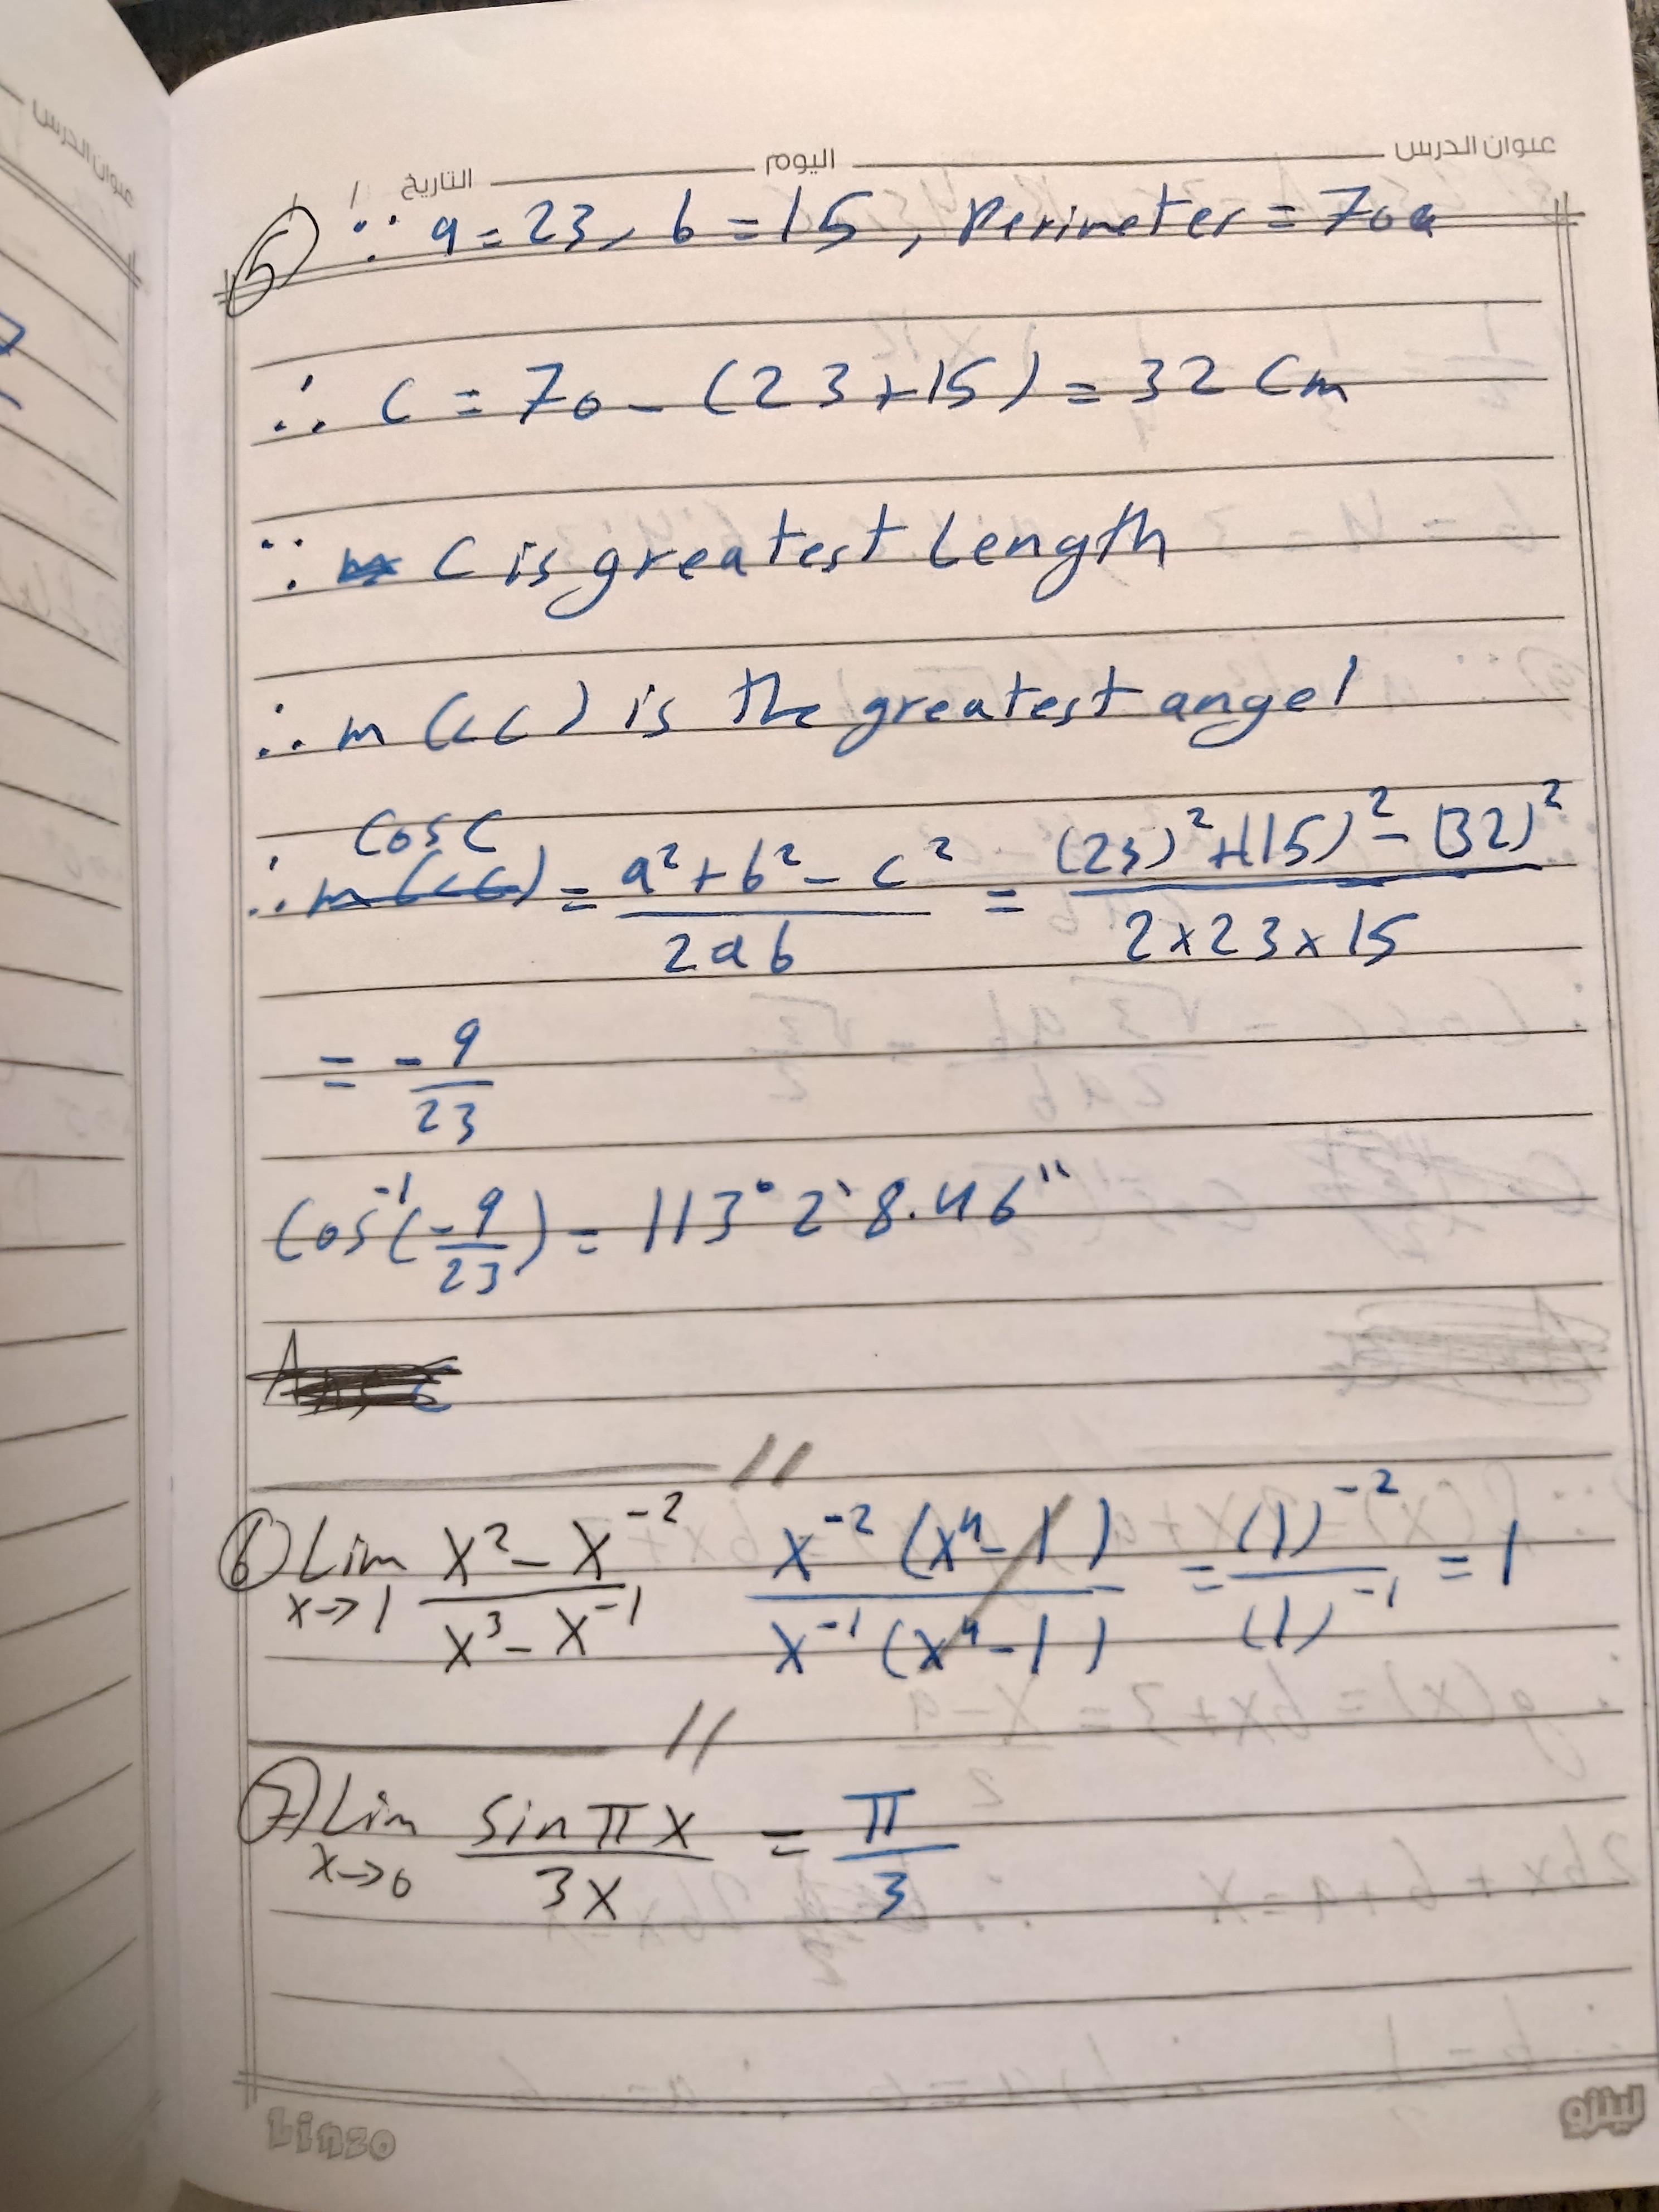 عنوان الدرس
عنوان الدرس اليوم التاريخ /
⑤ ∵ a = 23, b = 15, Perimeter = 70
∴ c = 70 - (23+15) = 32 Cm
∵ C is greatest Length
∴ m(∠C) is the greatest angel
∴ Cos C = a² + b² - c² / 2ab = (23)² + (15)² - (32)² / 2×23×15
= - 9/23
Cos⁻¹(-9/23) = 113° 2' 8.46"
⑥ Lim x→1 x² - x⁻² / x³ - x⁻¹ x⁻² (x⁴ - 1) / x⁻¹ (x⁴ - 1) = (1)⁻² / (1)⁻¹ = 1
⑦ Lim x→0 Sin π x / 3x = π/3
Linzo لينزو